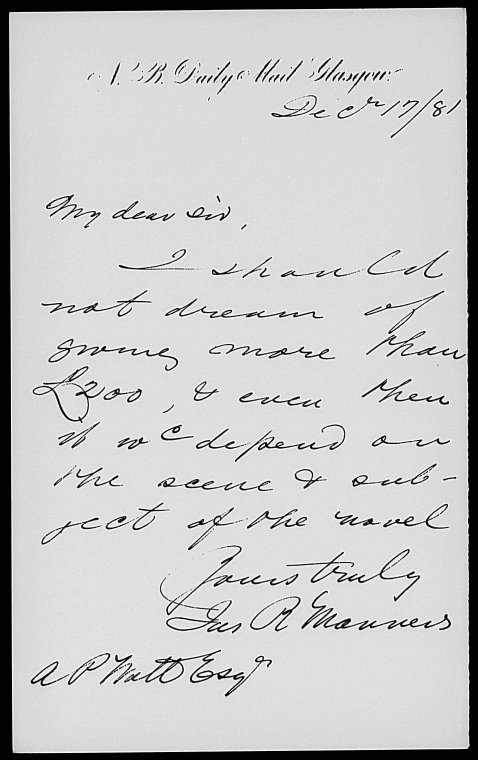 N. B. Daily Mail Glasgow.
Decr 17/81
My dear Sir,
I should
not dream of
giving more than
£200, & even then
it wd depend on
the scene & sub-
ject of the novel
Yours truly
Jas R Manners
A P Watt Esqr